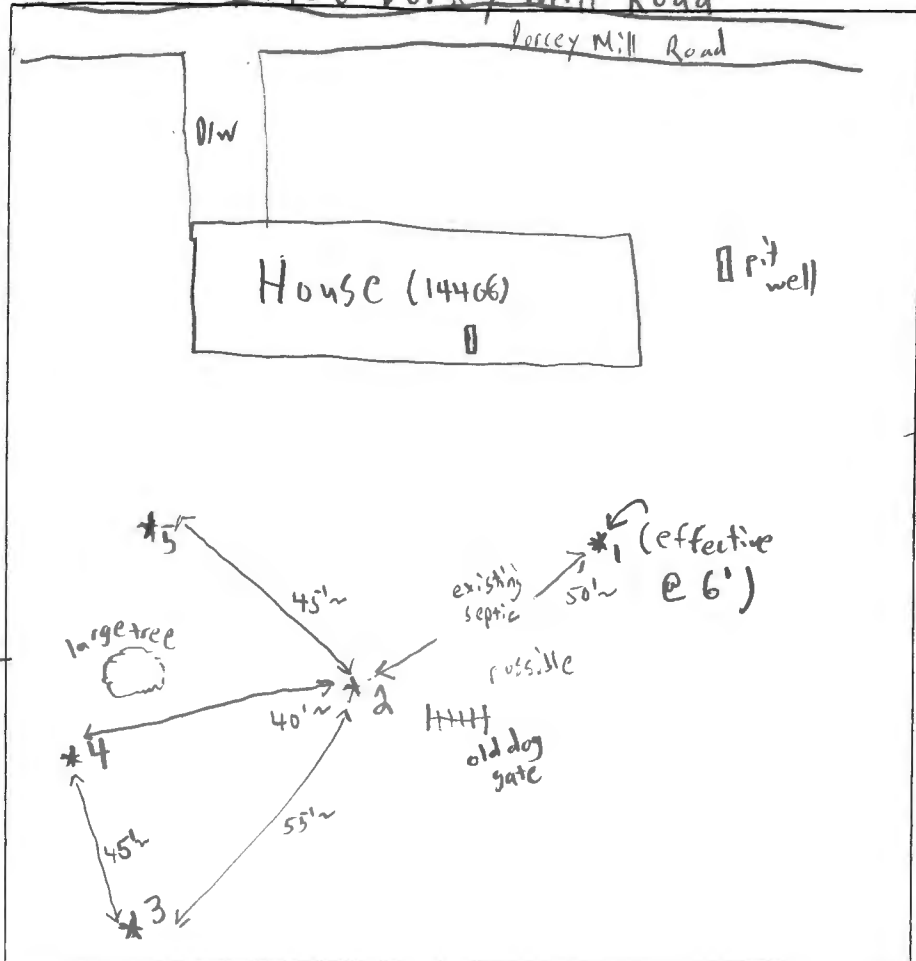 Mill Road
Dorsey Mill Road
D/W
House (14406)
pit
well
*5
*1 (effective
@ 6')
existing
septic
50'~
45'~
large tree
possible
*2
40'~
old dog
gate
*4
55'~
45'~
*3